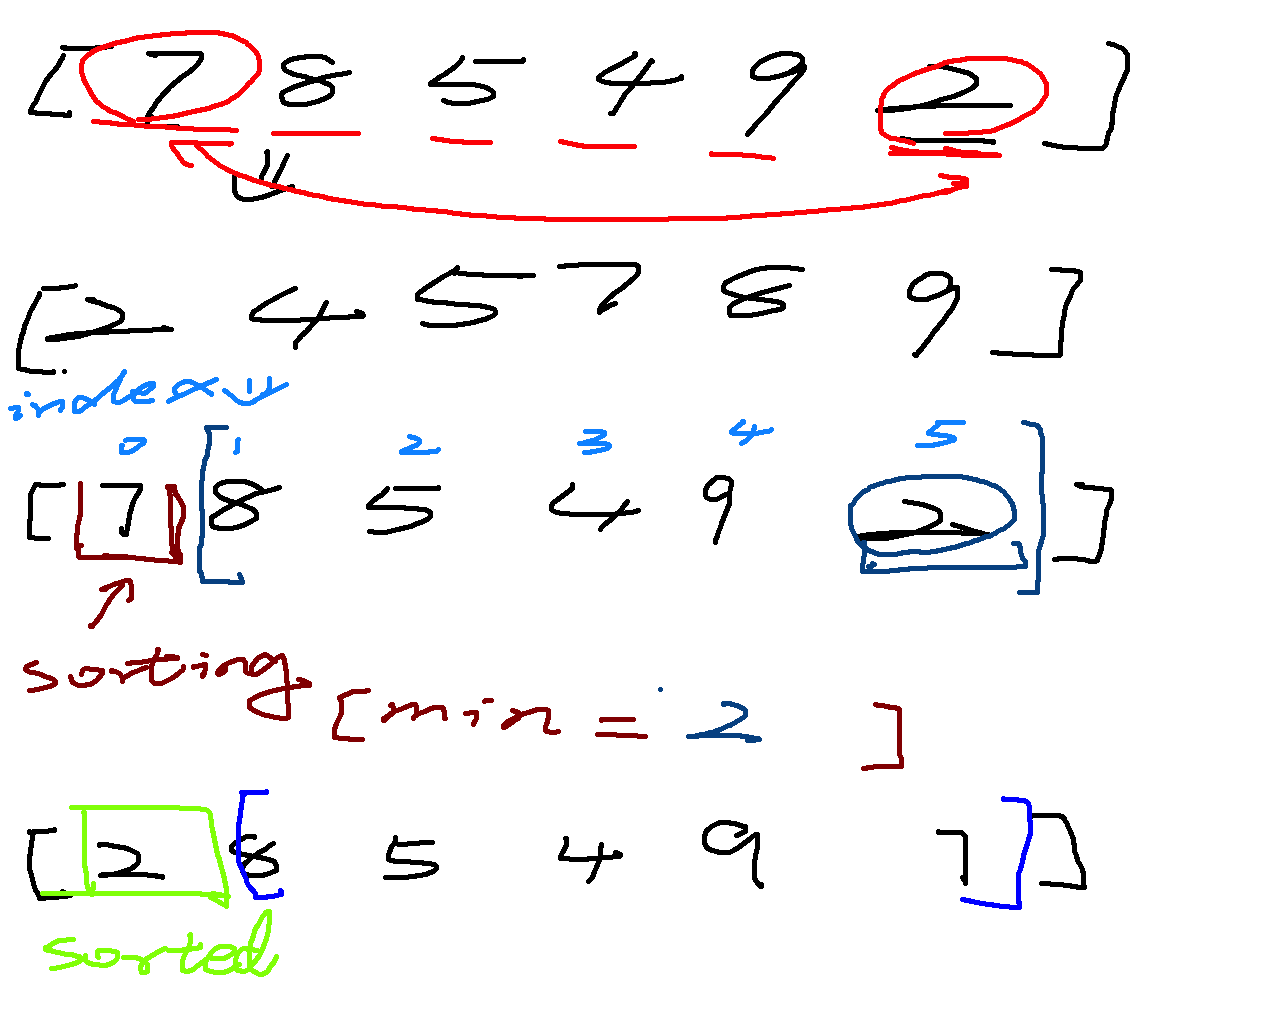 [ 7 8 5 4 9 2 ]
[ 2 4 5 7 8 9 ]
index
0 1 2 3 4 5
[ 7 [ 8 5 4 9 2 ] ]
sorting
[ min = 2 ]
[ 2 [ 8 5 4 9 7 ] ]
sorted